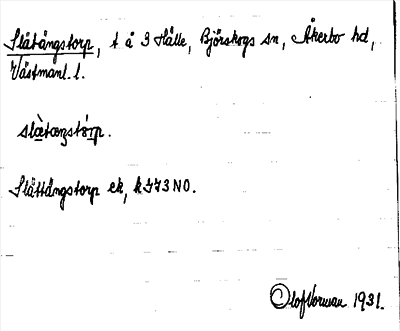 Slätängstorp, t å 3 Hälle, Björskogs sn, Åkerbo hd,
Västmanl. l.
slæ̀tæŋstɔ́rp.
Slättängstorp ek, k 773 NO.
Olof Norman 1931.